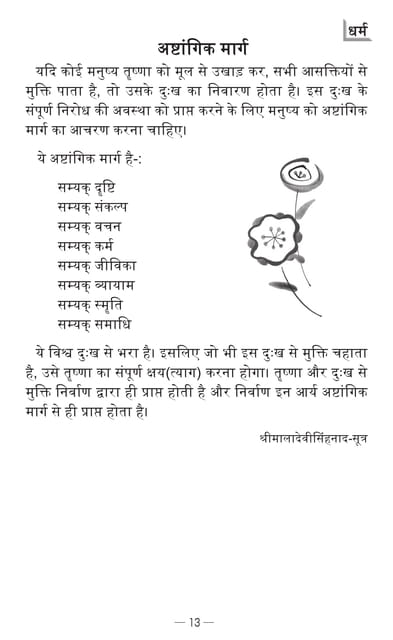 धर्म
अष्टांगिक मार्ग
यदि कोई मनुष्य तृष्णा को मूल से उखाड़ कर, सभी आसक्तियों से
मुक्ति पाता है, तो उसके दुःख का निवारण होता है। इस दुःख के
संपूर्ण निरोध की अवस्था को प्राप्त करने के लिए मनुष्य को अष्टांगिक
मार्ग का आचरण करना चाहिए।
ये अष्टांगिक मार्ग है-:
सम्यक् दृष्टि
सम्यक् संकल्प
सम्यक् वचन
सम्यक् कर्म
सम्यक् जीविका
सम्यक् व्यायाम
सम्यक् स्मृति
सम्यक् समाधि
ये विश्व दुःख से भरा है। इसलिए जो भी इस दुःख से मुक्ति चहाता
है, उसे तृष्णा का संपूर्ण क्षय(त्याग) करना होगा। तृष्णा और दुःख से
मुक्ति निर्वाण द्वारा ही प्राप्त होती है और निर्वाण इन आर्य अष्टांगिक
मार्ग से ही प्राप्त होता है।
श्रीमालादेवीसिंहनाद-सूत्र
— 13 —